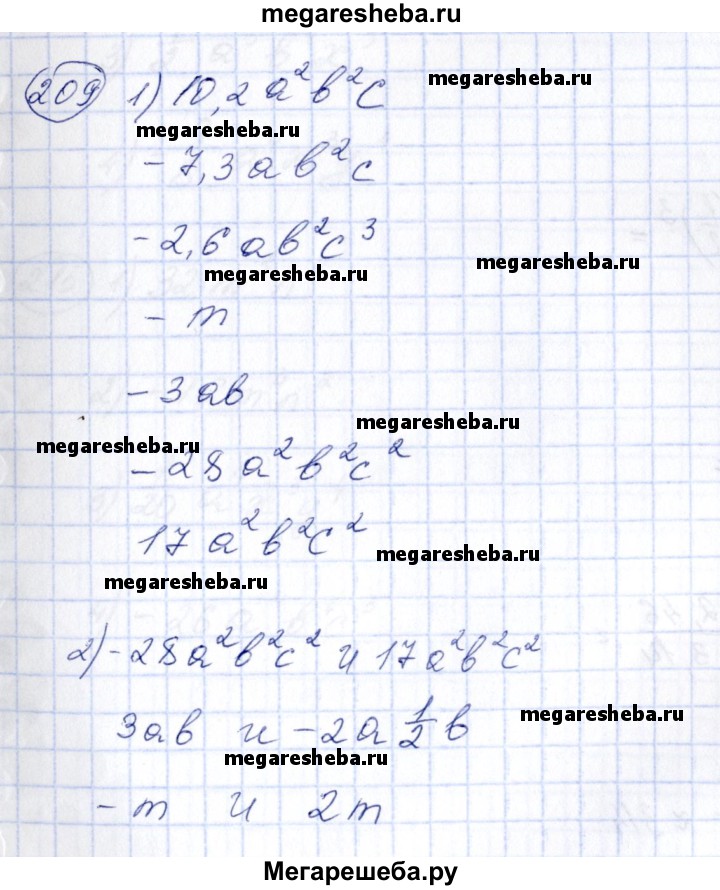 megaresheba.ru
209 1) 10,2a²b²c
megaresheba.ru
megaresheba.ru
-7,3ab²c
-2,6ab²c³
megaresheba.ru
megaresheba.ru
-m
-3ab
megaresheba.ru
megaresheba.ru
-28a²b²c²
17a²b²c²
megaresheba.ru
megaresheba.ru
2) -28a²b²c² и 17a²b²c²
3ab и -2a ½ b
megaresheba.ru
megaresheba.ru
-m и 2m
Мегарешеба.ру